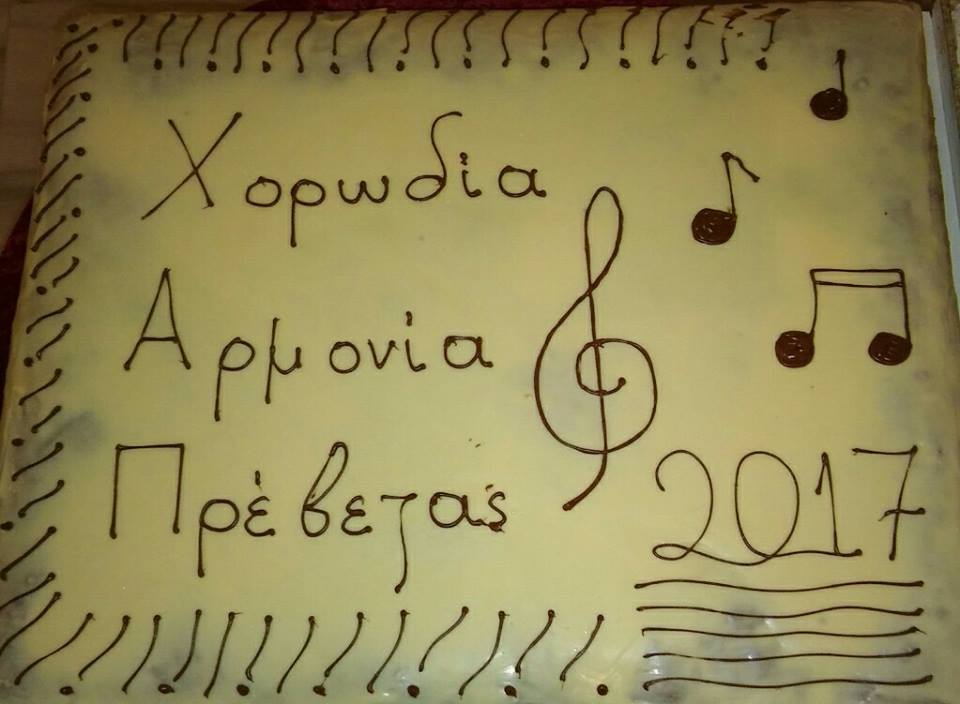 Χορωδία
Αρμονία
Πρέβεζας
2017